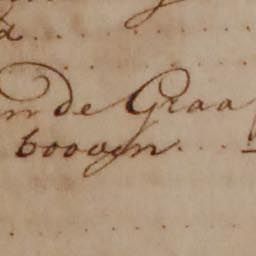 n de Graaf
booven